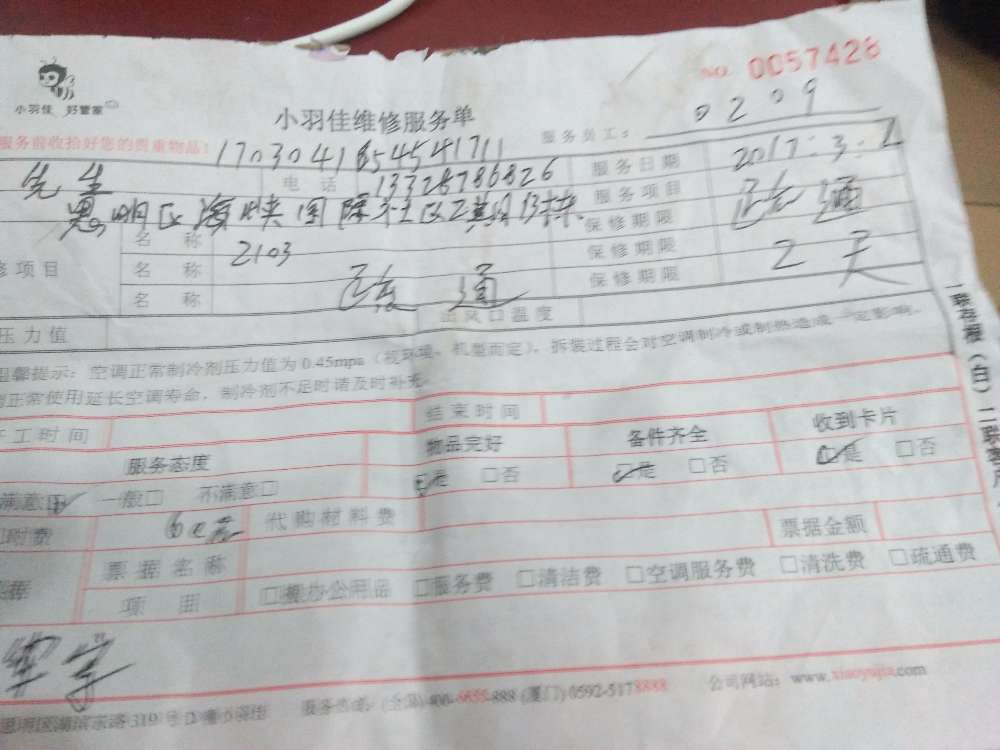 NO. 0057428
小羽佳 好管家
小羽佳维修服务单
服务员工: 0209
服务前收拾好您的贵重物品!
1703041654541711
服务日期 2017.3.
先生 电话 13328786826 服务项目 疏通
思明区海峡国际社区 保修期限
名称 2103 保修期限 2天
修项目 名称 疏通 保修期限
名称
压力值 出风口温度
温馨提示:空调正常制冷剂压力值为0.45mpa(视环境、机型而定),拆装过程会对空调制冷或制热造成一定影响。
正常使用延长空调寿命,制冷剂不足时请及时补充。
工时间 结束时间
服务态度 物品完好 备件齐全 收到卡片
满意☑ 一般□ 不满意□ 是 □否 是 □否 是 □否
代购材料费 票据金额
票据名称
项目 □办公用品 □服务费 □清洁费 □空调服务费 □清洗费 □疏通费
思明区湖滨东路319号
服务咨询:(全国)400-6655-888 (厦门)0592-5178888
公司网站:www.xiaoyujia.com
一联存根(白)二联客户